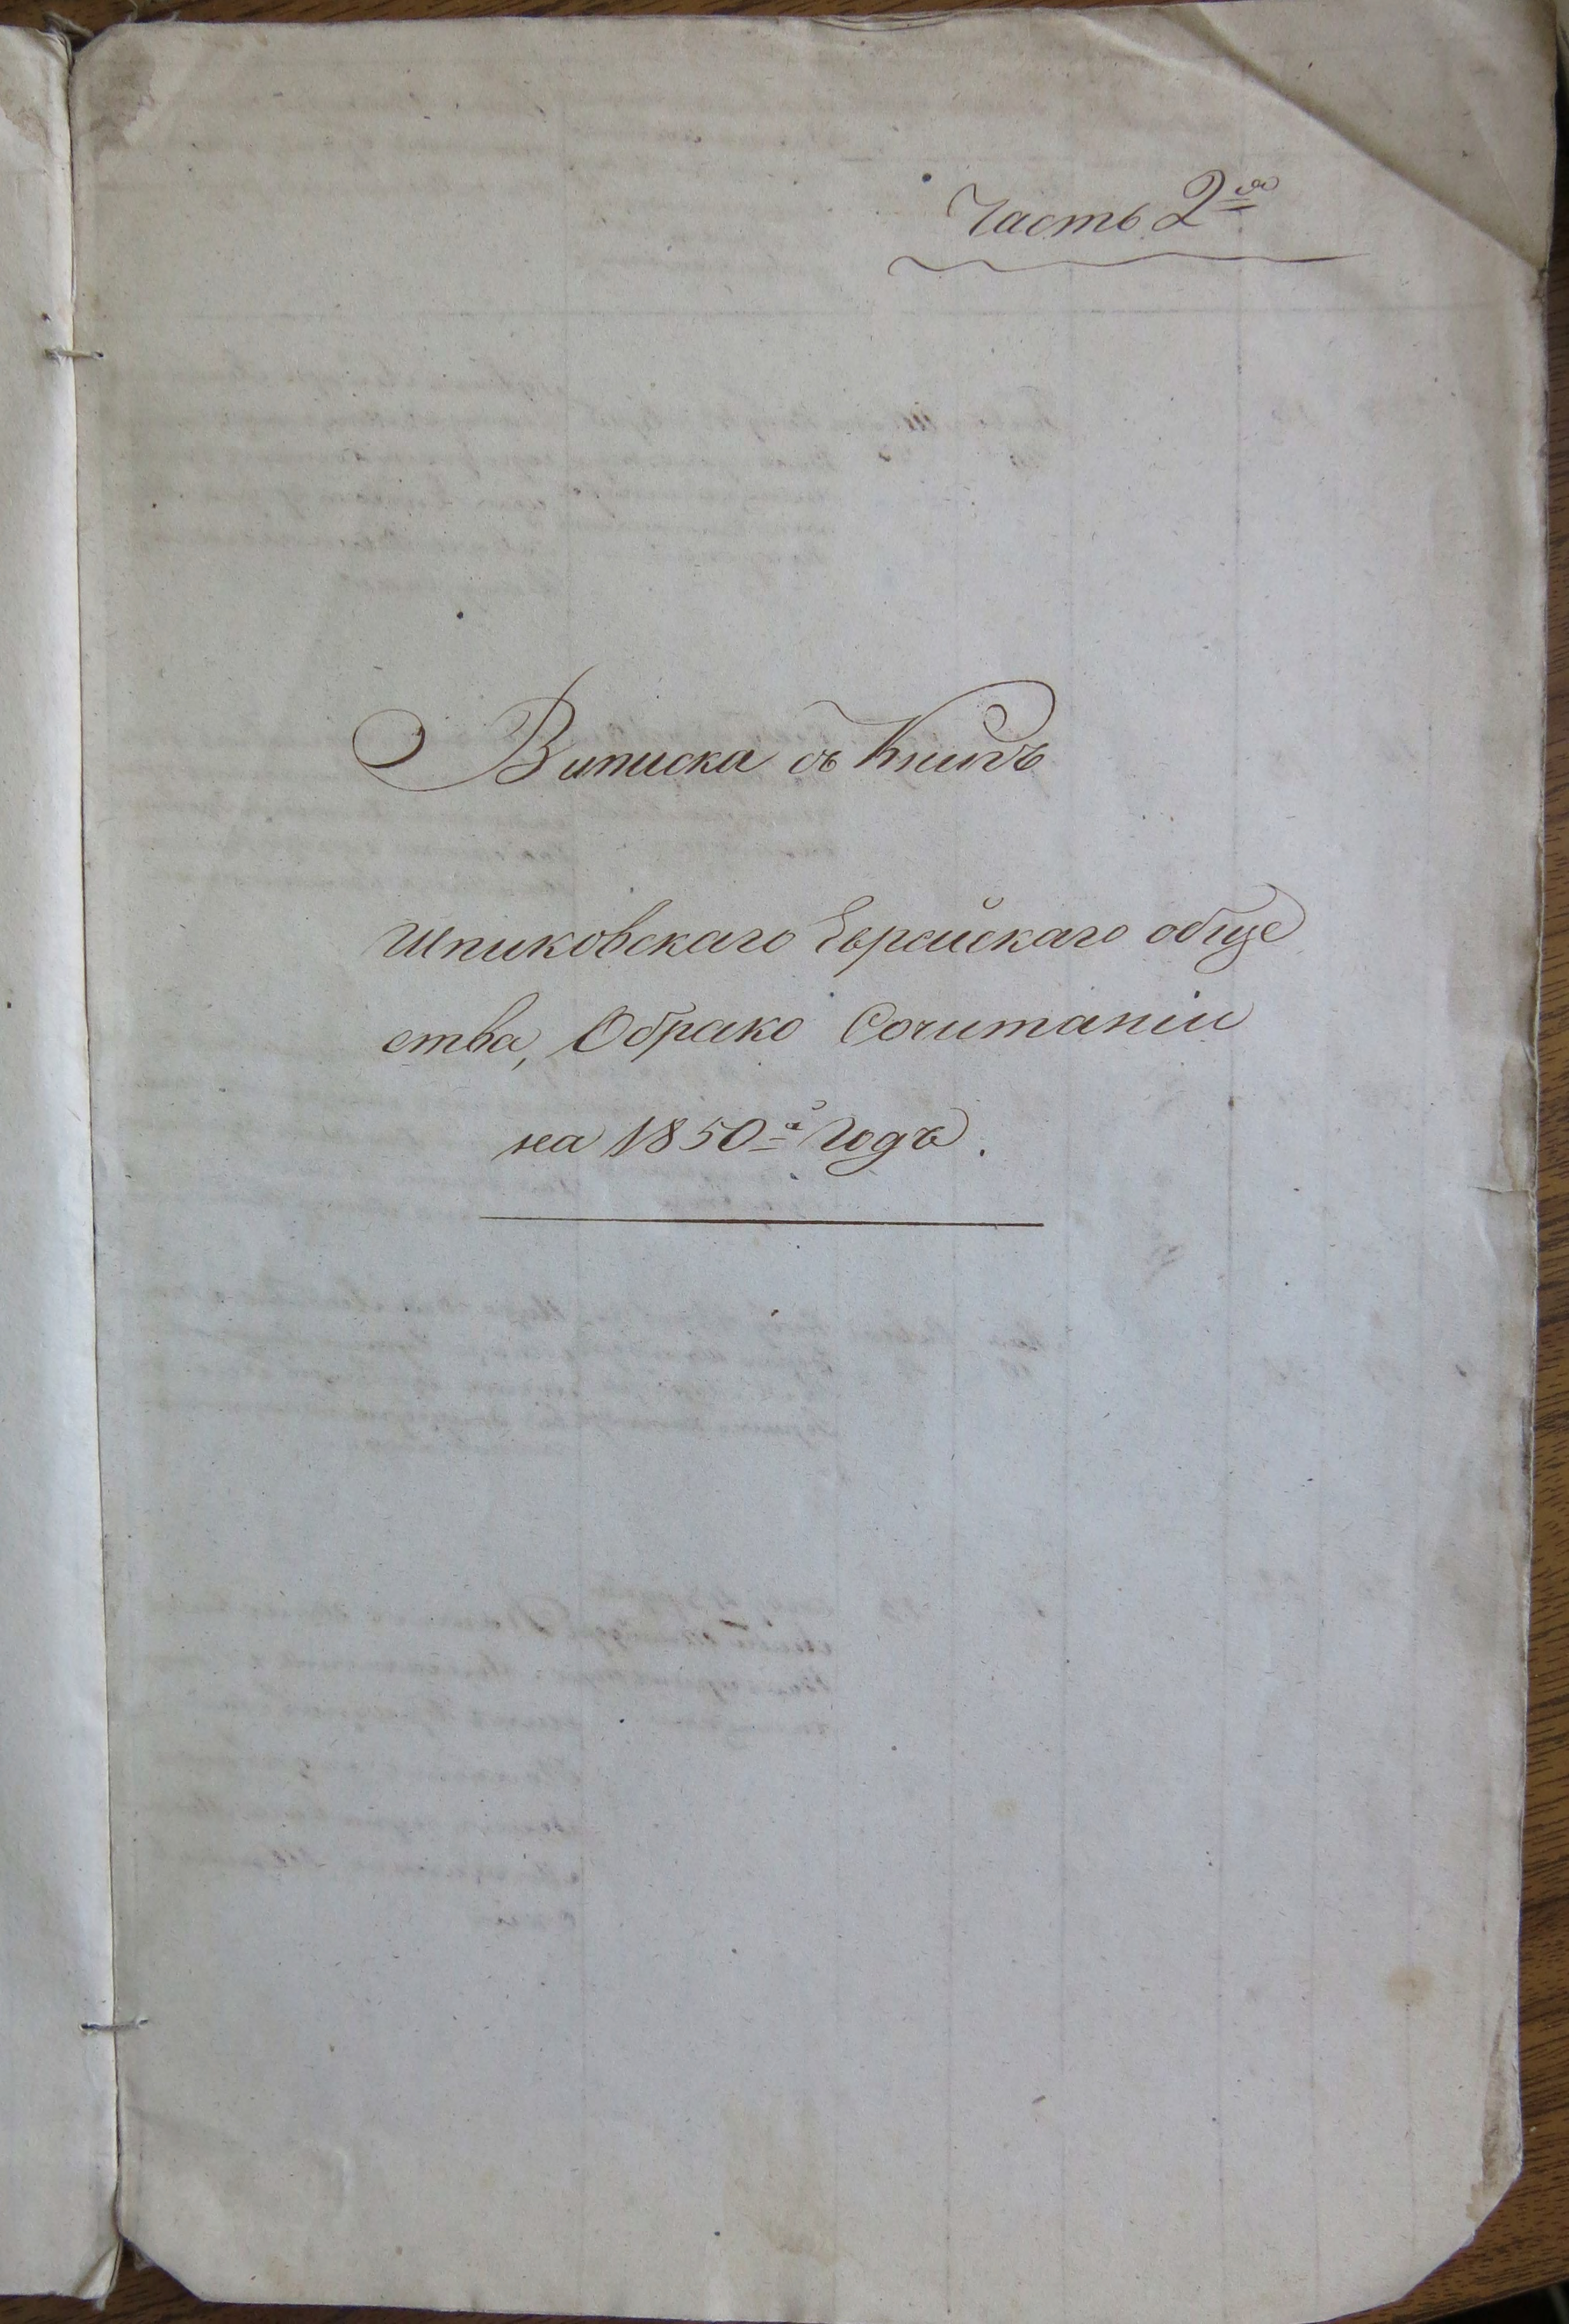 Часть 2ая
Виписка съ Книгъ
Шпиковскаго Еврейскаго обще
ства, Обрако Сочитаніи
на 1850й Годъ.